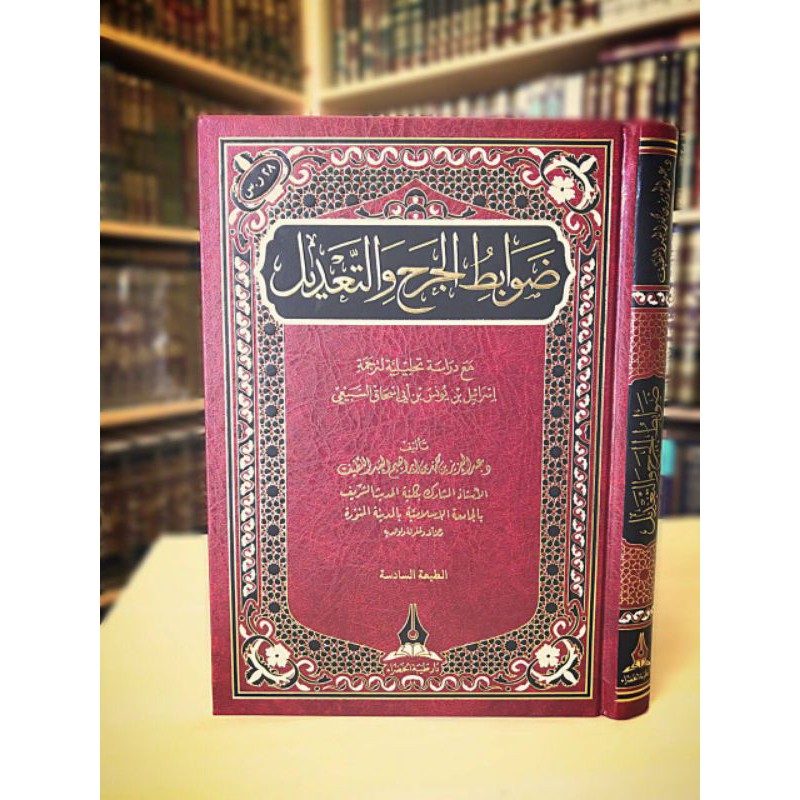 ٢٨ ر.س
ضَوَابِطُ الجَرْحِ وَالتَّعْدِيْلِ
مَعَ دِرَاسَة تَحْلِيْلِيَّة لِتَرجَمَةِ
إسْرَائِيْل بْن يُوْنُسَ بْن أَبِي إِسْحَاق السَّبِيْعِيّ
تَأليفُ
د. عبد العزيز بن محمد بن إبراهيم العبد اللطيف
الأستاذ المشارك بكلية الحديث الشريف
بالجامعة الإسلامية بالمدينة المنورة
الطبعة السادسة
دار طيبة الخضراء
ضوابط الجرح والتعديل